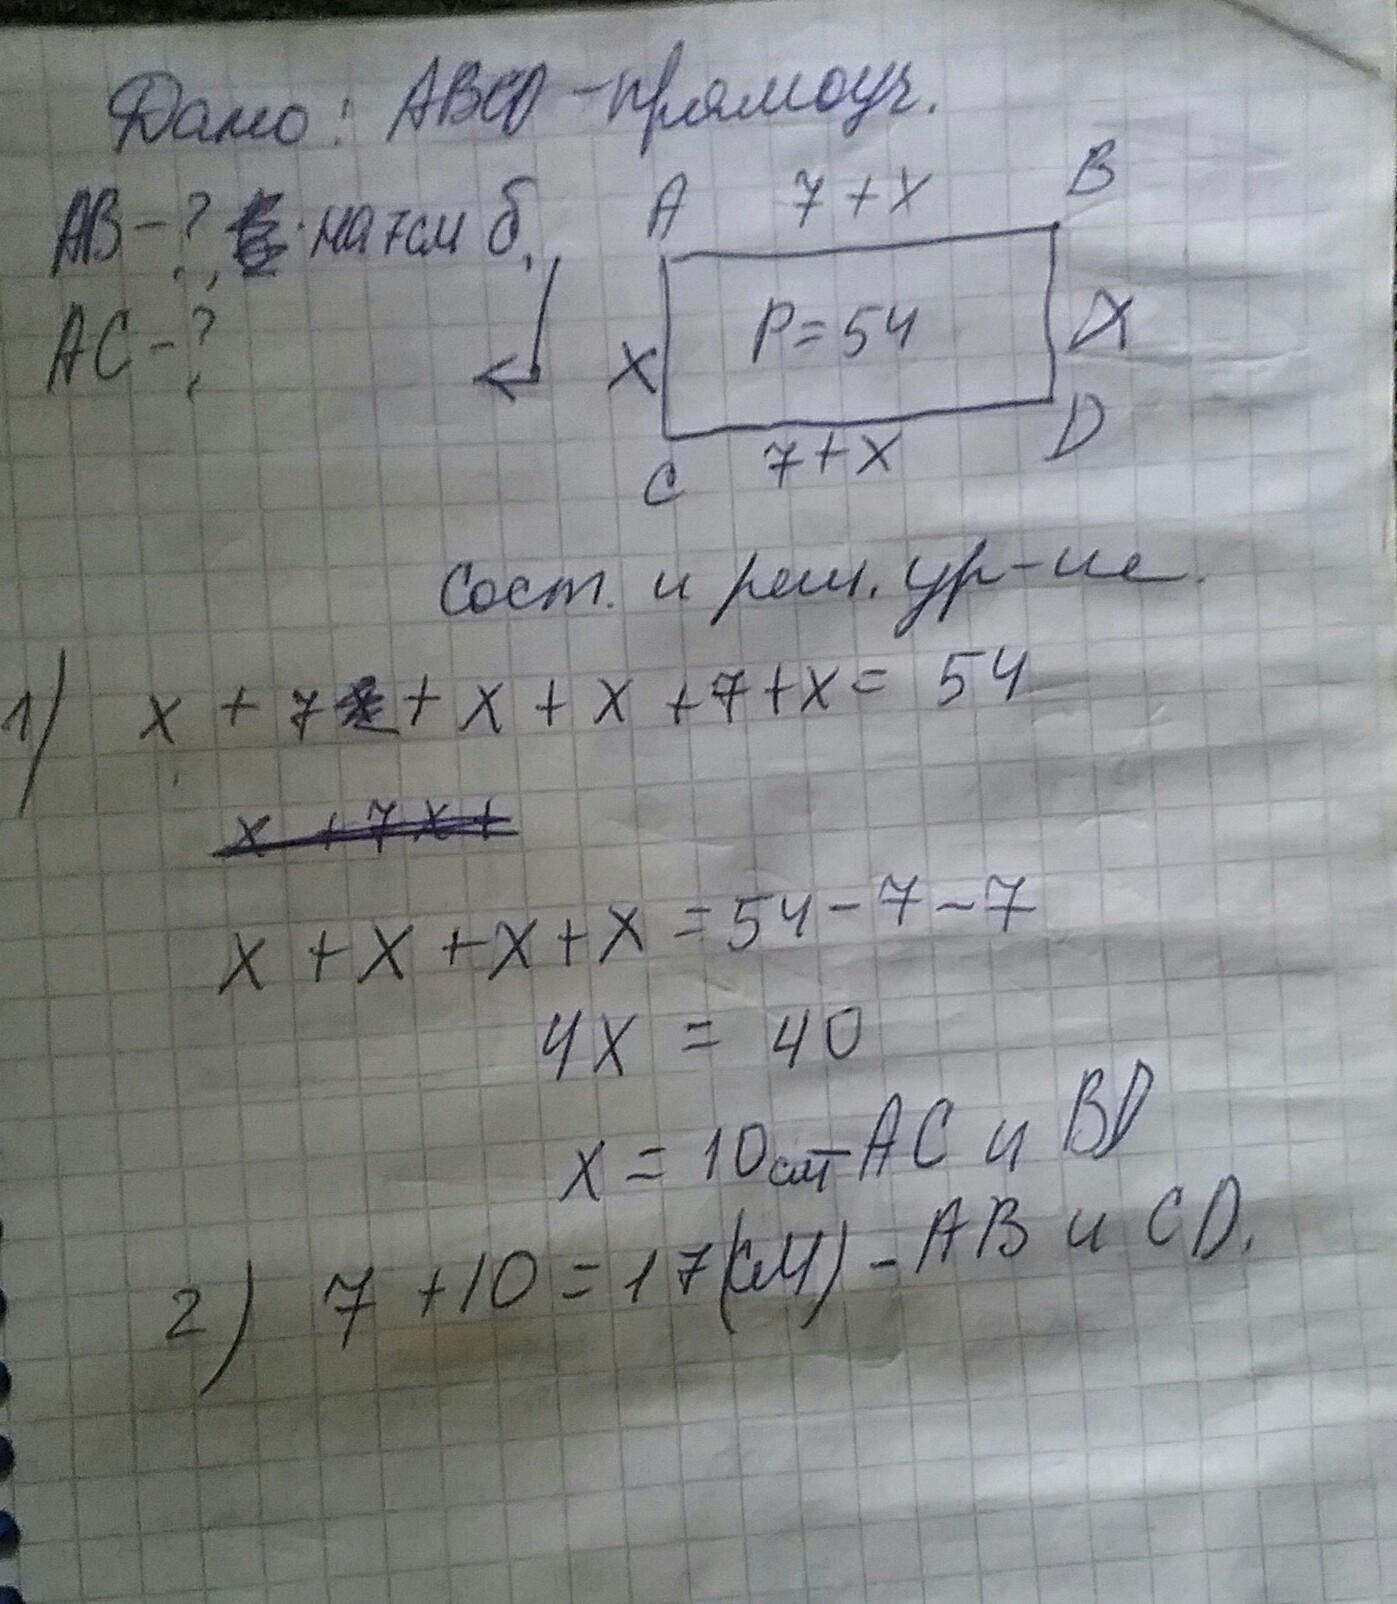 Дано: ABCD - прямоуг.
AB - ?, на 7см б.
AC - ?
A 7 + x B
x P = 54 x
C 7 + x D
Сост. и реш. ур-ие.
1) x + 7 + x + x + 7 + x = 54
x + 7x +
x + x + x + x = 54 - 7 - 7
4x = 40
x = 10см - AC и BD
2) 7 + 10 = 17(см) - AB и CD.